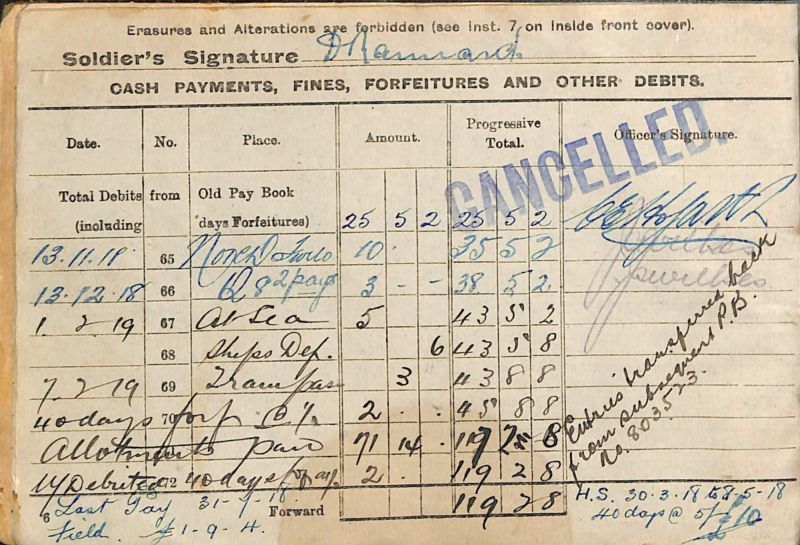 Erasures and Alterations are forbidden (see Inst. 7, on inside front cover).
Soldier's Signature
CASH PAYMENTS, FINES, FORFEITURES AND OTHER DEBITS.
Date. No. Place. Amount. Progressive Total. Officer's Signature.
CANCELLED.
Total Debits from Old Pay Book
(including days Forfeitures) 25 5 2 25 5 2
13.11.18 65 10 . 35 5 2
13.12.18 66 3 - - 38 5 2
1. 2. 19 67 At Sea 5 43 5 2
68 Ships Def. 6 43 5 8
7. 2. 19 69 3 43 8 8
40 days 70 2 . . 45 8 8
Allotments paid 71 14 . 8
Debited 72 40 days 2 . 119 2 8
6 Last Pay 31-7-18 Forward 119 2 8
Field. £1-9-4.
Entries transferred back
from subsequent P.B.
No. 803523.
H.S. 30.3.18 8-5-18
40 days @ 5/- £10